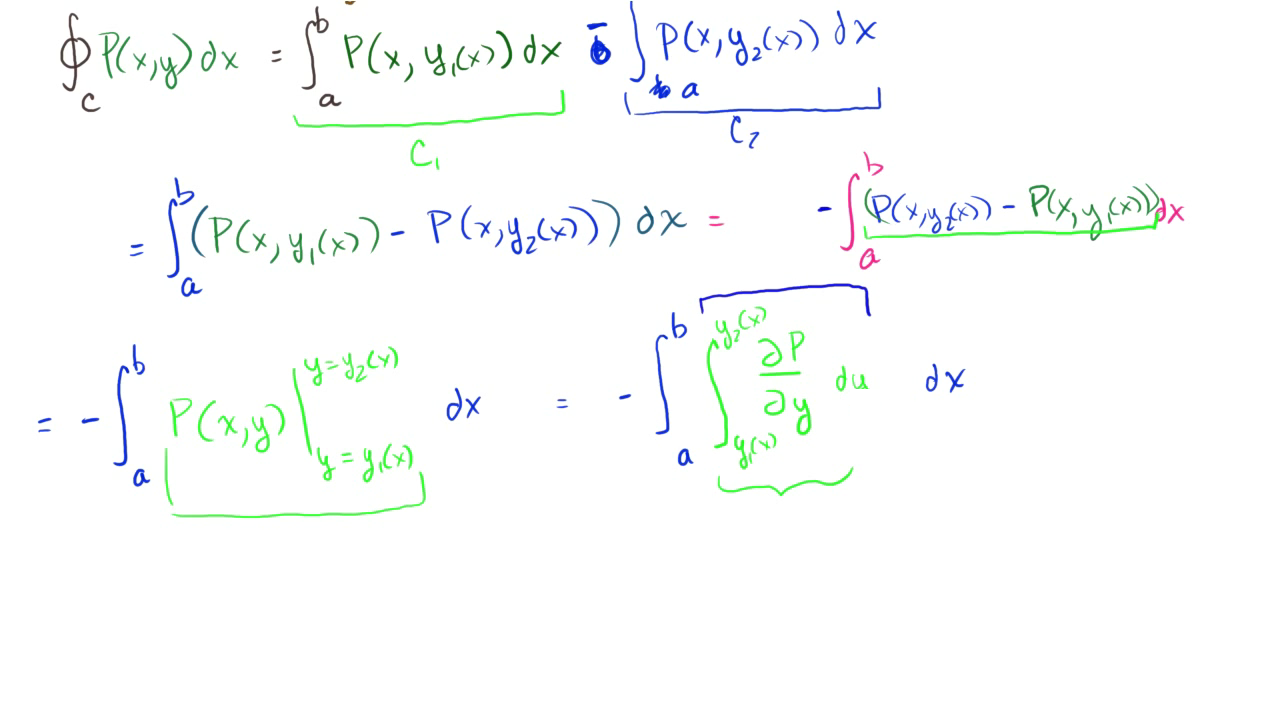 ∮_C P(x,y) dx = ∫_a^b P(x, y₁(x)) dx - ∫_a P(x, y₂(x)) dx
C₁ C₂
= ∫_a^b (P(x, y₁(x)) - P(x, y₂(x))) dx = - ∫_a^b (P(x, y₂(x)) - P(x, y₁(x))) dx
= - ∫_a^b P(x,y) |_{y = y₁(x)}^{y = y₂(x)} dx = - ∫_a^b ∫_{y₁(x)}^{y₂(x)} ∂P/∂y du dx